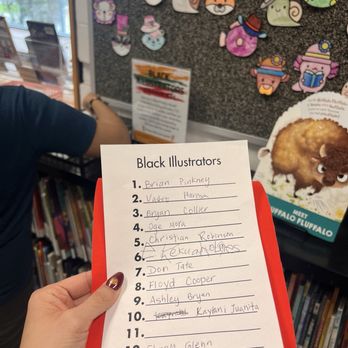 BLACK
ILLUSTRATORS
Black Illustrators
1. Brian Pinkney
2. Vashti Harrison
3. Bryan Collier
4. Oge Mora
5. Christian Robinson
6.
7. Don Tate
8. Floyd Cooper
9. Ashley Bryan
10. Kaylani Juanita
11.
Glenn
MEET
BUFFALO FLUFFALO